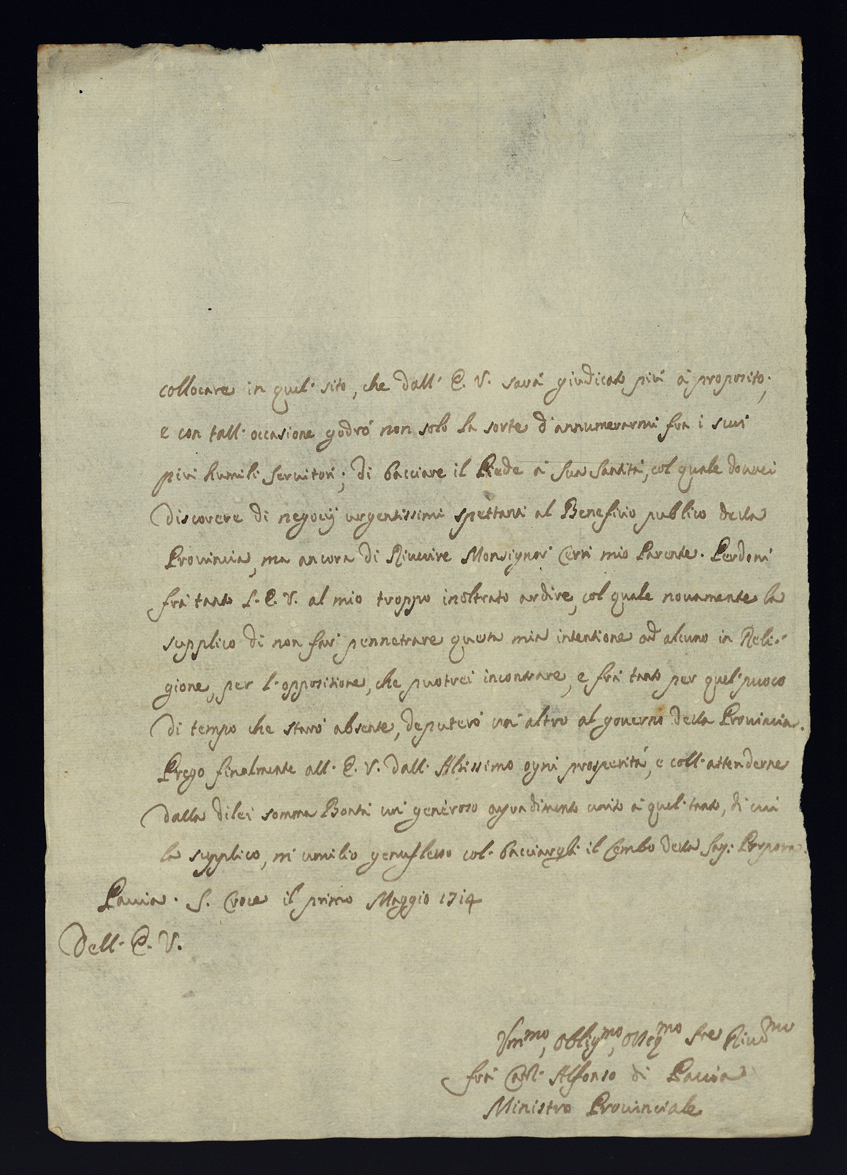 collocare in quel' sito, che dall' E. V. sará giudicato piú á proposito;
e con tall' occasione godró non solo la sorte d'annumerarmi frá i suoi
piú humili servitori; di bacciare il Piede á Sua Santitá, col quale dovrei
discorere di negocij urgentissimi spettanti al Beneficio publico della
Provincia, ma ancora di Riverire Monsignor' Cerri mio Parente. Perdoni
frá tanto L'E. V. al mio troppo inoltrato ardire, col quale novamente la
supplico di non far' pennetrare questa mia intentione ad alcuno in Reli-
gione, per l'oppositione, che puotrei incontrare, e frá tanto per quel' puoco
di tempo che staró absente, deputeró un' altro al governo della Provincia.
Prego finalmente all' E. V. dall' Altissimo ogni prosperitá, e coll' attenderne
dalla dilei somma Bontá un' generoso agradimento unito á quel' tanto, di cui
la supplico, mi umilio genuflesso col' bacciargli il Lembo della Sag: Porpora.
Pavia. S. Croce il primo Maggio 1714
Dell' E. V.
Um.mo, Oblig.mo, Osseq.mo
frá Alfonso di Pavia
Ministro Provinciale